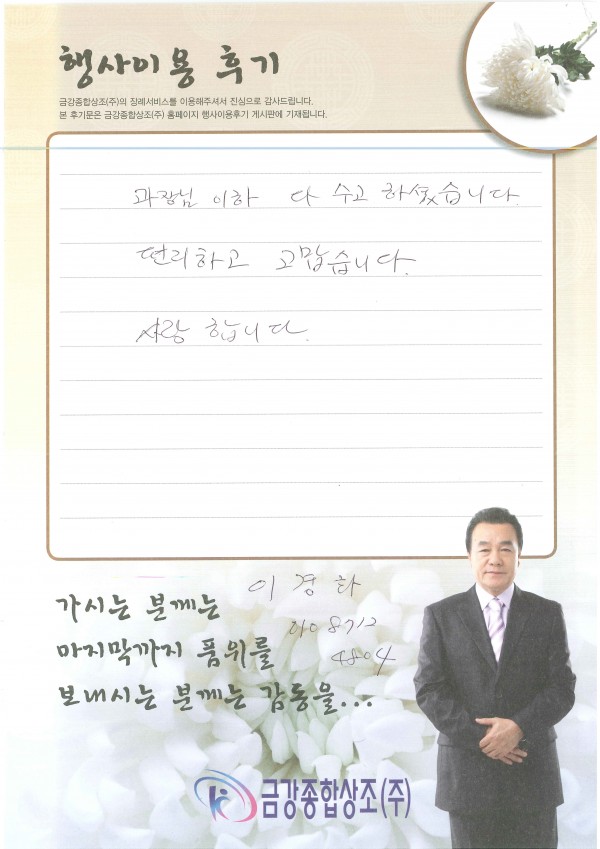 행사이용 후기
금강종합상조(주)의 장례서비스를 이용해주셔서 진심으로 감사드립니다.
본 후기문은 금강종합상조(주) 홈페이지 행사이용후기 게시판에 기재됩니다.
과장님 이하 다 수고 하셨습니다.
편리하고 고맙습니다.
사랑 합니다.
이경하
010 8712
4804
가시는 분께는
마지막까지 품위를
보내시는 분께는 감동을...
금강종합상조(주)